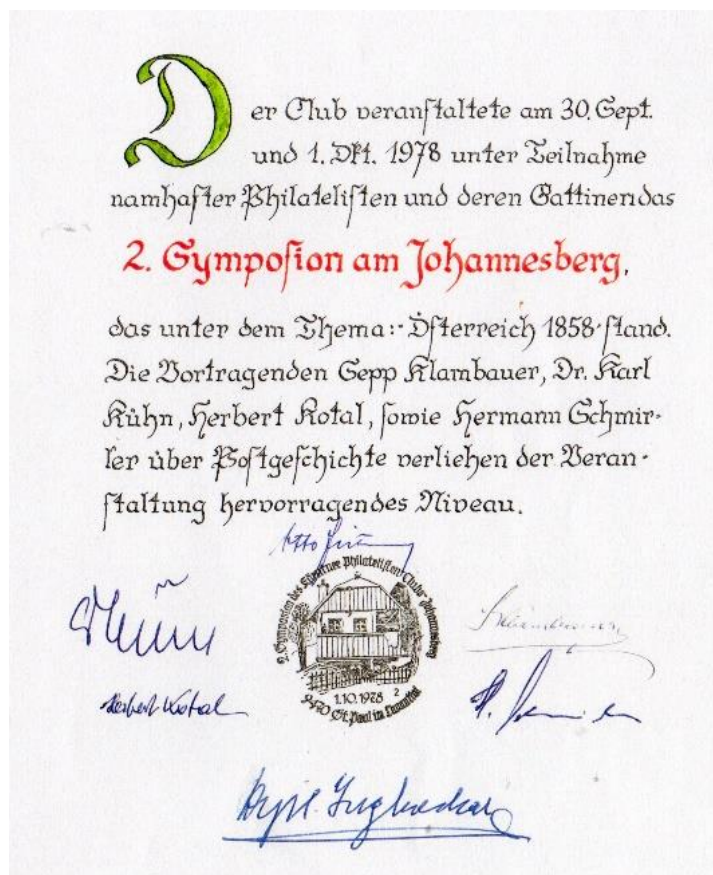 Der Club veranstaltete am 30. Sept.
und 1. Okt. 1978 unter Teilnahme
namhafter Philatelisten und deren Gattinen das
2. Symposion am Johannesberg,
das unter dem Thema:·Österreich 1858·stand.
Die Vortragenden Sepp Klambauer, Dr. Karl
Kühn, Herbert Kotal, sowie Hermann Schmir-
ler über Postgeschichte verliehen der Veran-
staltung hervorragendes Niveau.
Otto
2. Symposion des Kärntner Philatelisten Clubs Johannesberg
Kühn
Herbert Kotal
1.10.1978 2
9470 St. Paul im Lavanttal
H.